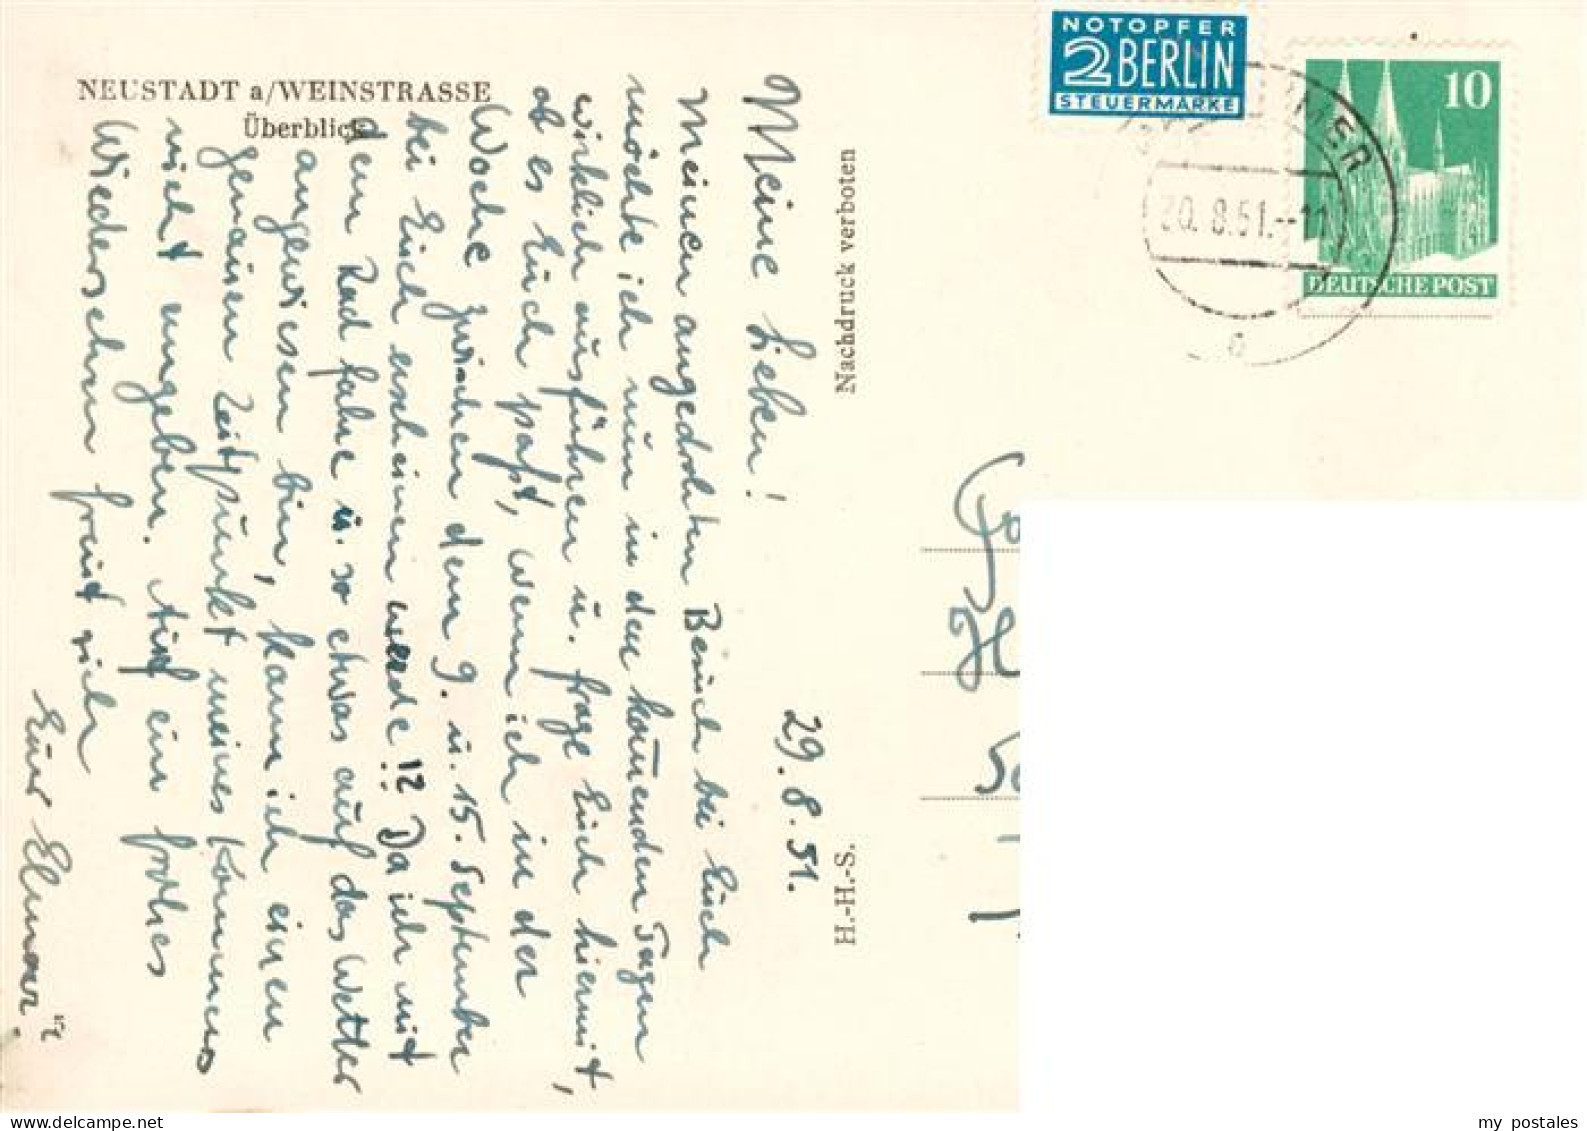 NEUSTADT a/WEINSTRASSE
Überblick
Nachdruck verboten
H.-H.-S.
NOTOPFER
2 BERLIN
STEUERMARKE
10
DEUTSCHE POST
8.51.-11
29.8.51.
Meine Lieben!
Meinen angedrohten Besuch bei Euch
möchte ich nun in den kom̄enden Tagen
wirklich ausführen u. frage Euch hiermit,
ob es Euch paßt, wenn ich in der
Woche zwischen dem 9. u. 15. September
bei Euch erscheinen werde!? Da ich mit
dem Rad fahre u. so etwas auf das Wetter
angewiesen bin, kann ich einen
genauen Zeitpunkt meines Kommens
nicht angeben. Auf ein frohes
Wiedersehen freut sich
Euer Elmar.
my postales